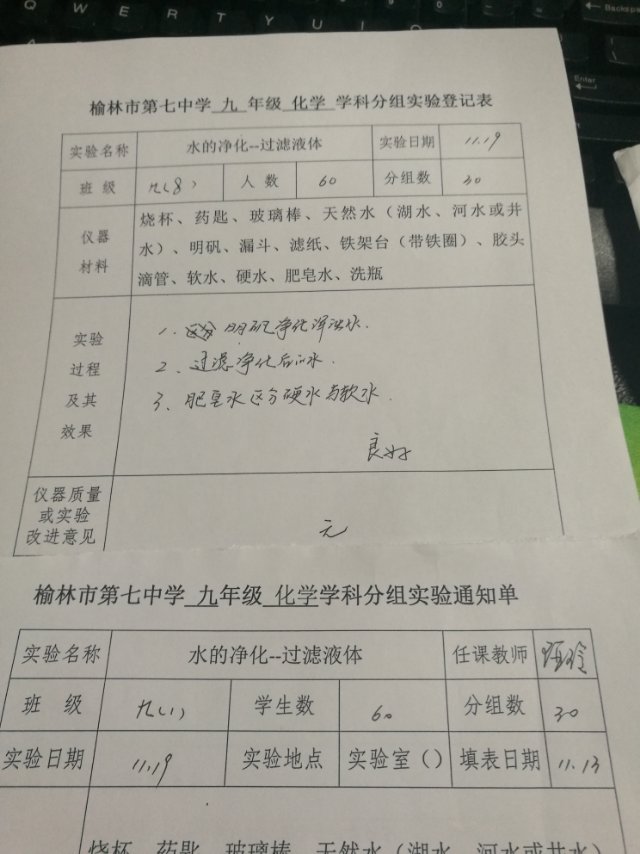 Q W E R T Y U
Backspace
Enter
榆林市第七中学 九 年级 化学 学科分组实验登记表
实验名称 水的净化--过滤液体 实验日期 11.19
班 级 九(8) 人 数 60 分组数 30
仪器
材料
烧杯、药匙、玻璃棒、天然水（湖水、河水或井
水）、明矾、漏斗、滤纸、铁架台（带铁圈）、胶头
滴管、软水、硬水、肥皂水、洗瓶
实验
过程
及其
效果
1、明矾净化浑浊水.
2、过滤净化后的水.
3、肥皂水区分硬水与软水.
良好
仪器质量
或实验
改进意见
无
榆林市第七中学 九年级 化学学科分组实验通知单
实验名称 水的净化--过滤液体 任课教师
班 级 九(1) 学生数 60 分组数 30
实验日期 11.19 实验地点 实验室（） 填表日期 11.13
烧杯、药匙、玻璃棒、天然水（湖水、河水或井水）